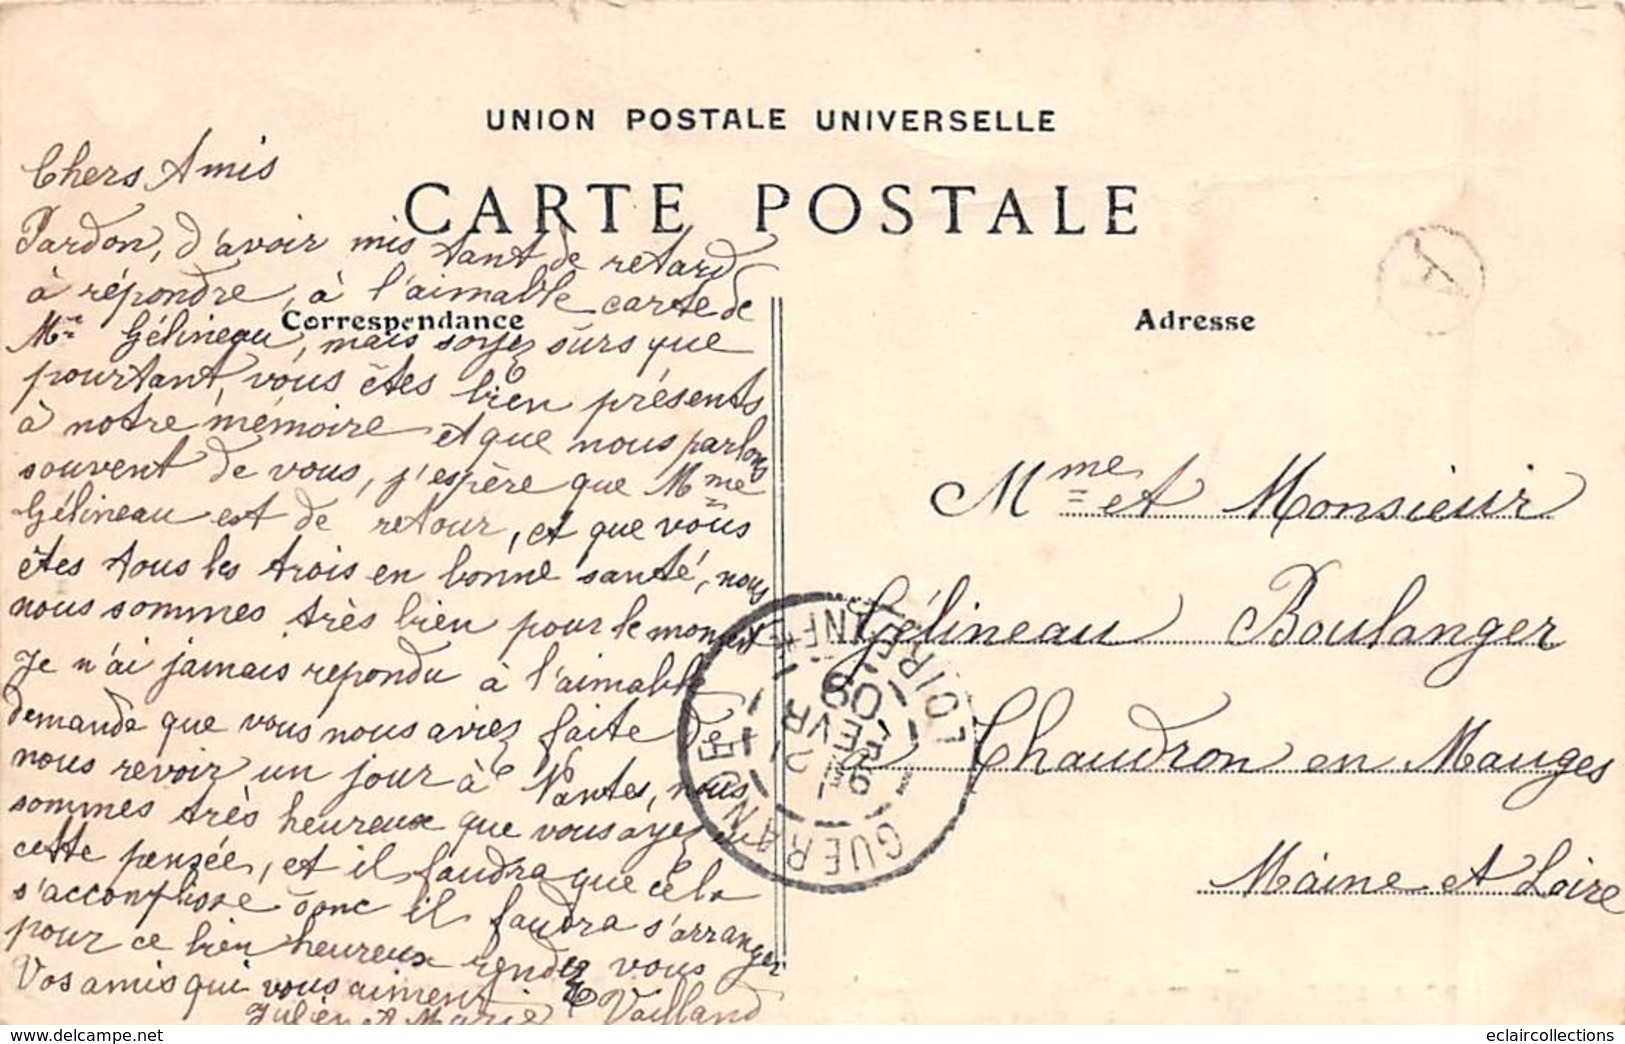 UNION POSTALE UNIVERSELLE
CARTE POSTALE
Correspondance
Adresse
Chers Amis
Pardon, d'avoir mis tant de retard
à répondre, à l'aimable carte de
Mme Gélineau, mais soyez surs que
pourtant, vous êtes bien présents
à notre mémoire et que nous parlons
souvent de vous, j'espère que Mme
Gélineau est de retour, et que vous
êtes tous les trois en bonne santé, nous
nous sommes très bien pour le moment
Je n'ai jamais repondu à l'aimable
demande que vous nous aviez faite de
nous revoir un jour à Nantes, nous
sommes très heureux que vous ayez eu
cette pensée, et il faudra que cela
s'accomplisse donc il faudra s'arranger
pour ce bien heureux rendez vous
Vos amis qui vous aiment
Julien et Marie Vailland
Mme et Monsieur
Gélineau Boulanger
à Chaudron en Mauges
Maine et Loire
GUERANDE
LOIRE INFRE
21
FEVR
09
A
delcampe.net
eclaircollections